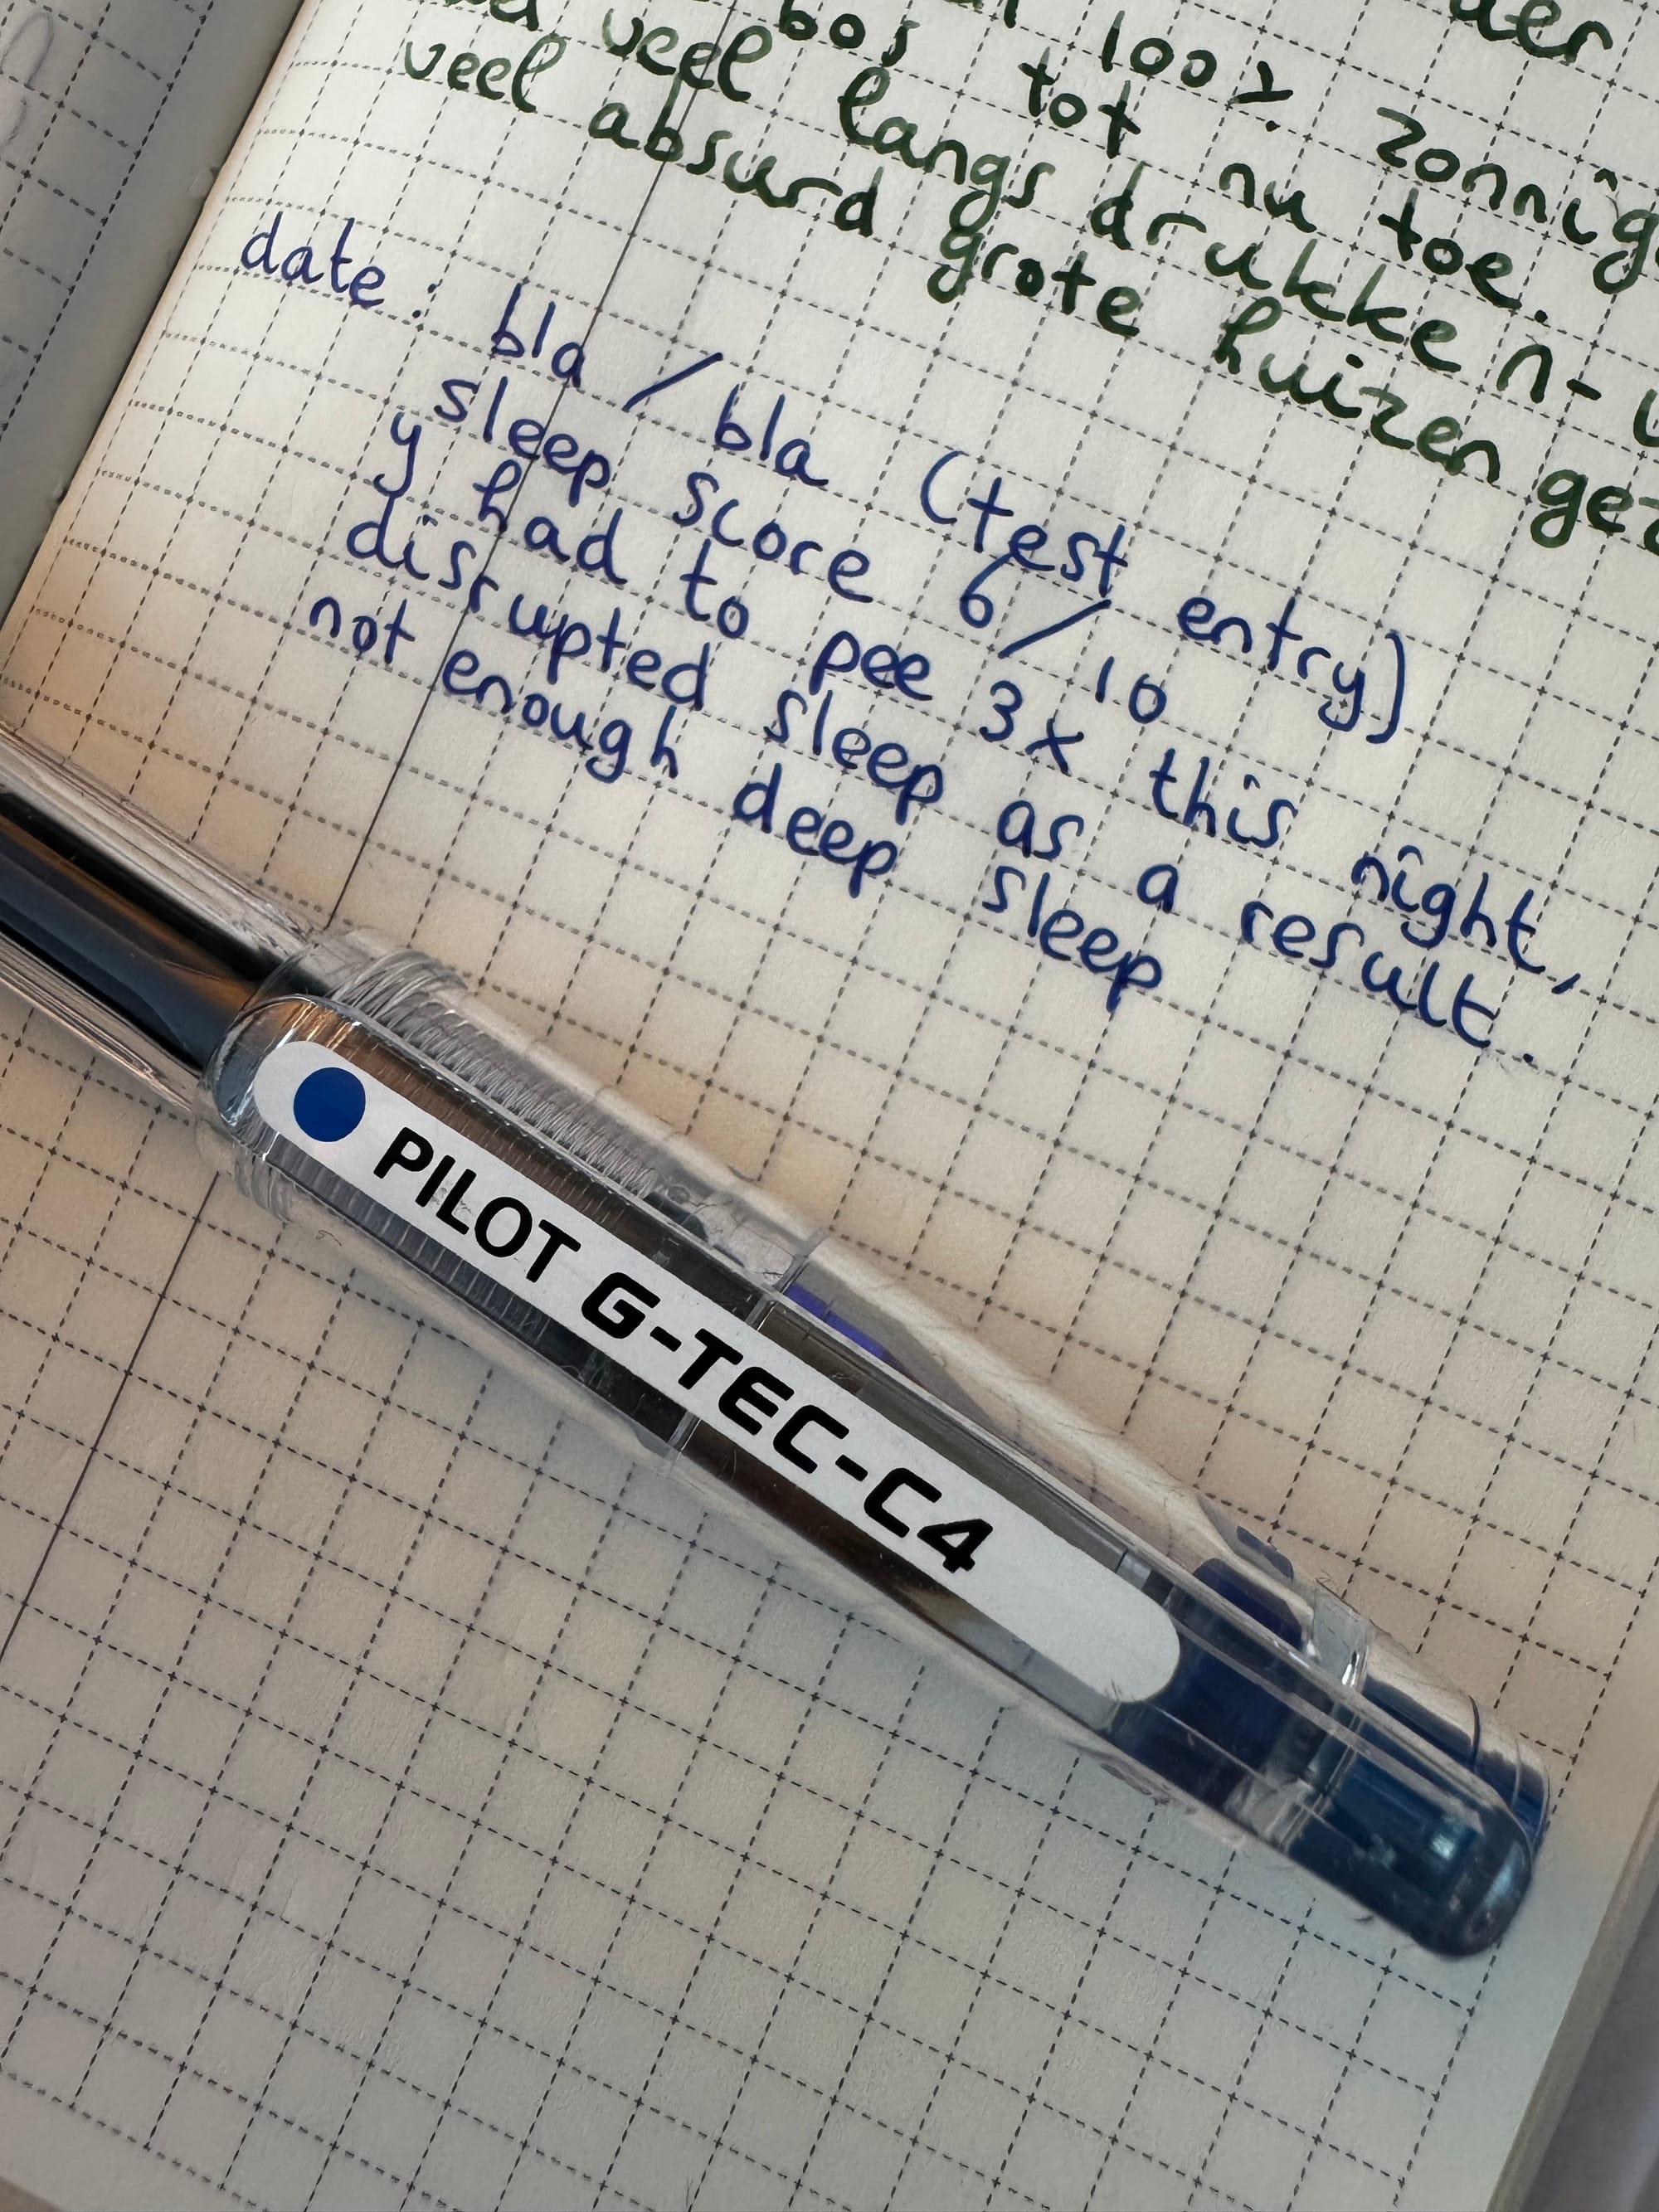 der
bos 100% zonnig
veel tot nu toe.
veel langs drukke n-
absurd grote huizen gez
date: bla/bla (test entry)
sleep score 6/10
y had to pee 3x this night,
disrupted sleep as a result.
not enough deep sleep
PILOT G-TEC-C4